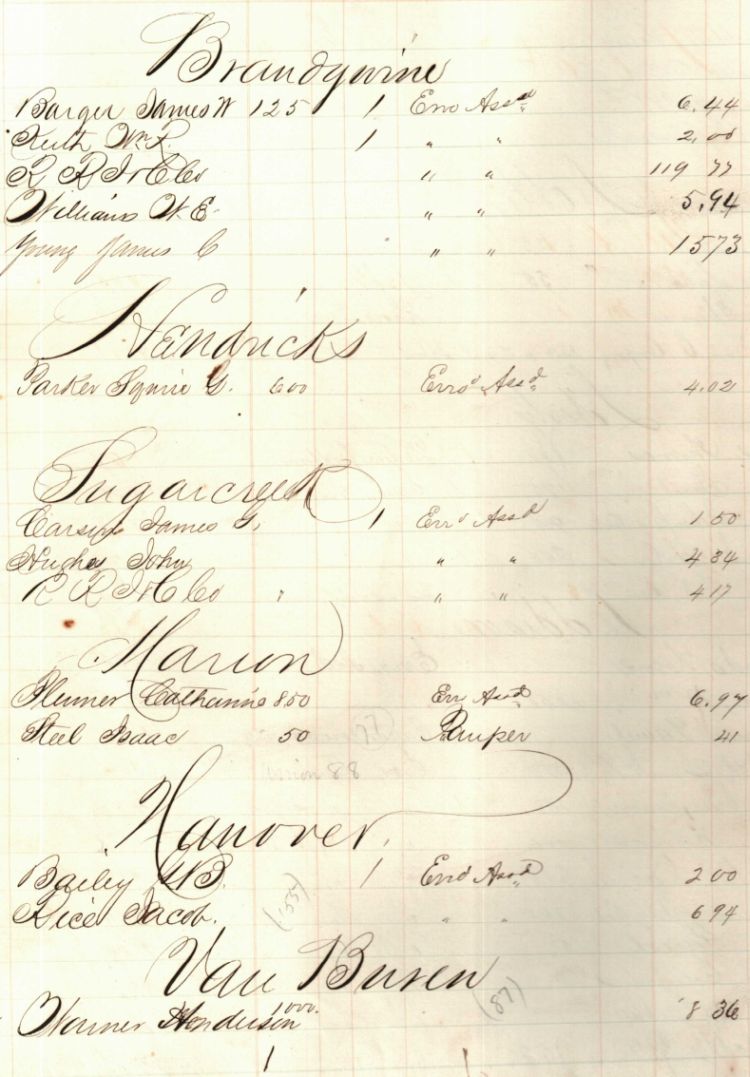 Brandywine
Barger James W 125 1 Erro Assd 6.44
Keith Wm R. 1 " " 2,00
R R I & C Co " " 119 77
Williams W E " " 5.94
Young James C " " 15 73
Hendricks
Parker Squire G. 600 Erro' Assd 4.02
Sugarcreek
James G, 1 Erro' Assd 1 50
Hughes John " " 4 34
R R I & C Co " " " 4 17
Marion
Plumer Catharine 800 Err Assd 6.97
Steel Isaac 50 Pauper 41
Hanover.
Bailey 1 Erro' Assd 2 00
Rice Jacob. " " 6 94
Van Buren
Warner Henderson 1000. 8 36
1 1